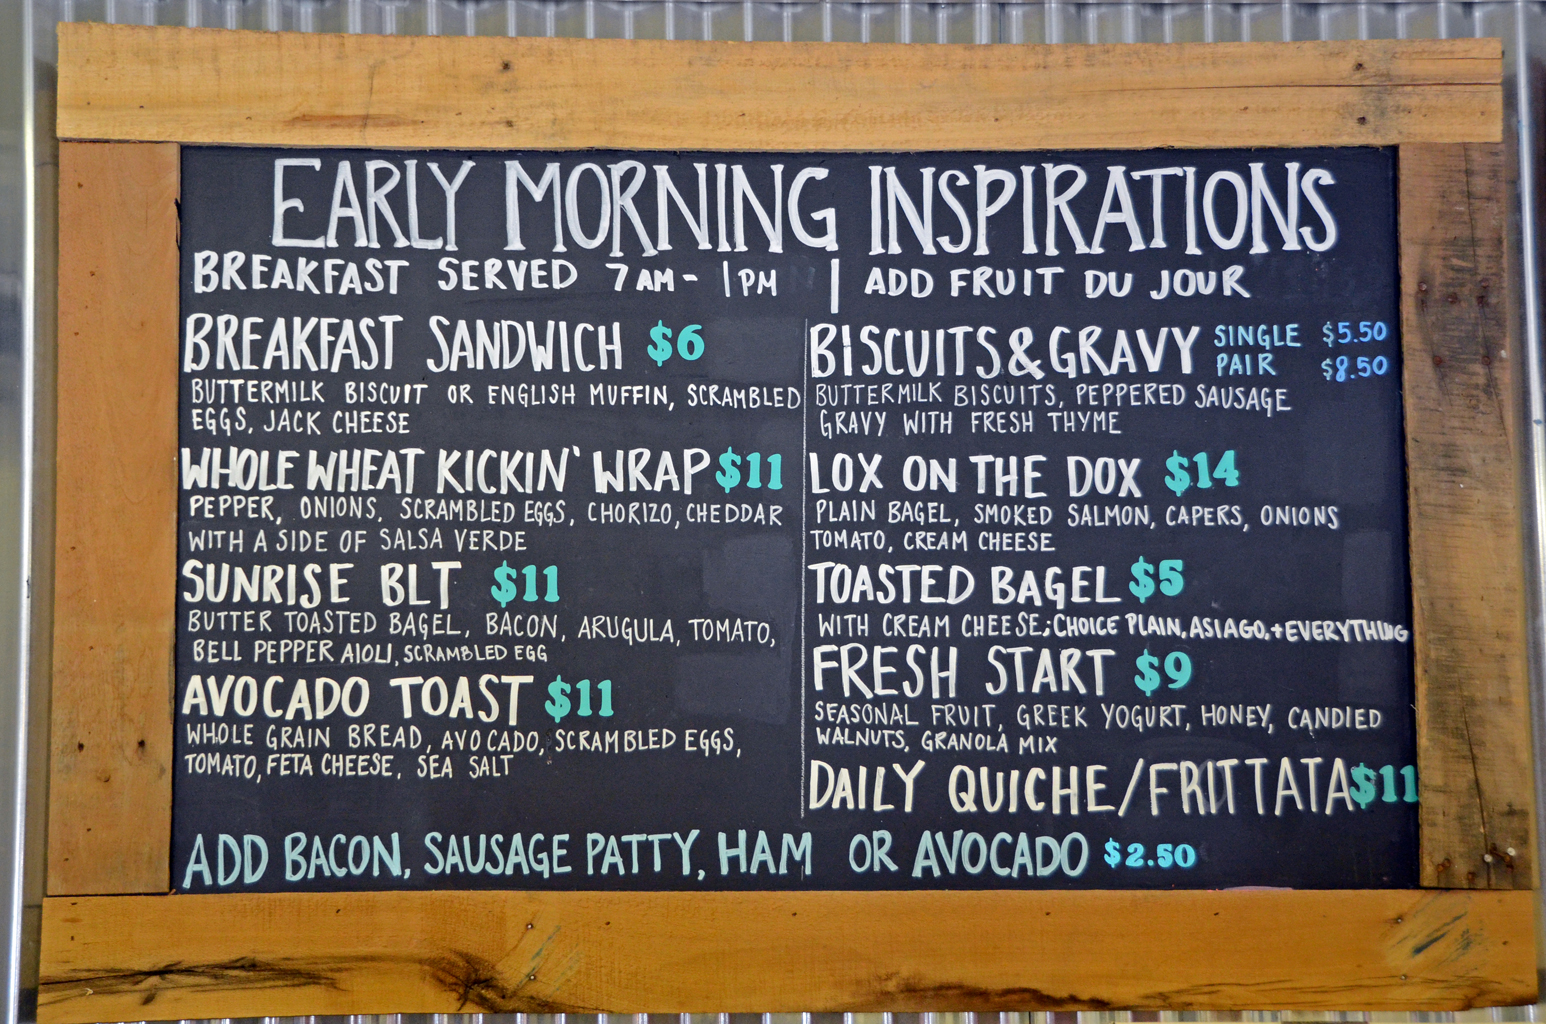 EARLY MORNING INSPIRATIONS
BREAKFAST SERVED 7AM- 1PM | ADD FRUIT DU JOUR
BREAKFAST SANDWICH $6
BUTTERMILK BISCUIT OR ENGLISH MUFFIN, SCRAMBLED
EGGS, JACK CHEESE
WHOLE WHEAT KICKIN' WRAP $11
PEPPER, ONIONS, SCRAMBLED EGGS, CHORIZO, CHEDDAR
WITH A SIDE OF SALSA VERDE
SUNRISE BLT $11
BUTTER TOASTED BAGEL, BACON, ARUGULA, TOMATO,
BELL PEPPER AIOLI, SCRAMBLED EGG
AVOCADO TOAST $11
WHOLE GRAIN BREAD, AVOCADO, SCRAMBLED EGGS,
TOMATO, FETA CHEESE, SEA SALT
BISCUITS & GRAVY SINGLE $5.50
PAIR $8.50
BUTTERMILK BISCUITS, PEPPERED SAUSAGE
GRAVY WITH FRESH THYME
LOX ON THE DOX $14
PLAIN BAGEL, SMOKED SALMON, CAPERS, ONIONS
TOMATO, CREAM CHEESE
TOASTED BAGEL $5
WITH CREAM CHEESE; CHOICE PLAIN, ASIAGO, + EVERYTHING
FRESH START $9
SEASONAL FRUIT, GREEK YOGURT, HONEY, CANDIED
WALNUTS, GRANOLA MIX
DAILY QUICHE/FRITTATA $11
ADD BACON, SAUSAGE PATTY, HAM OR AVOCADO $2.50